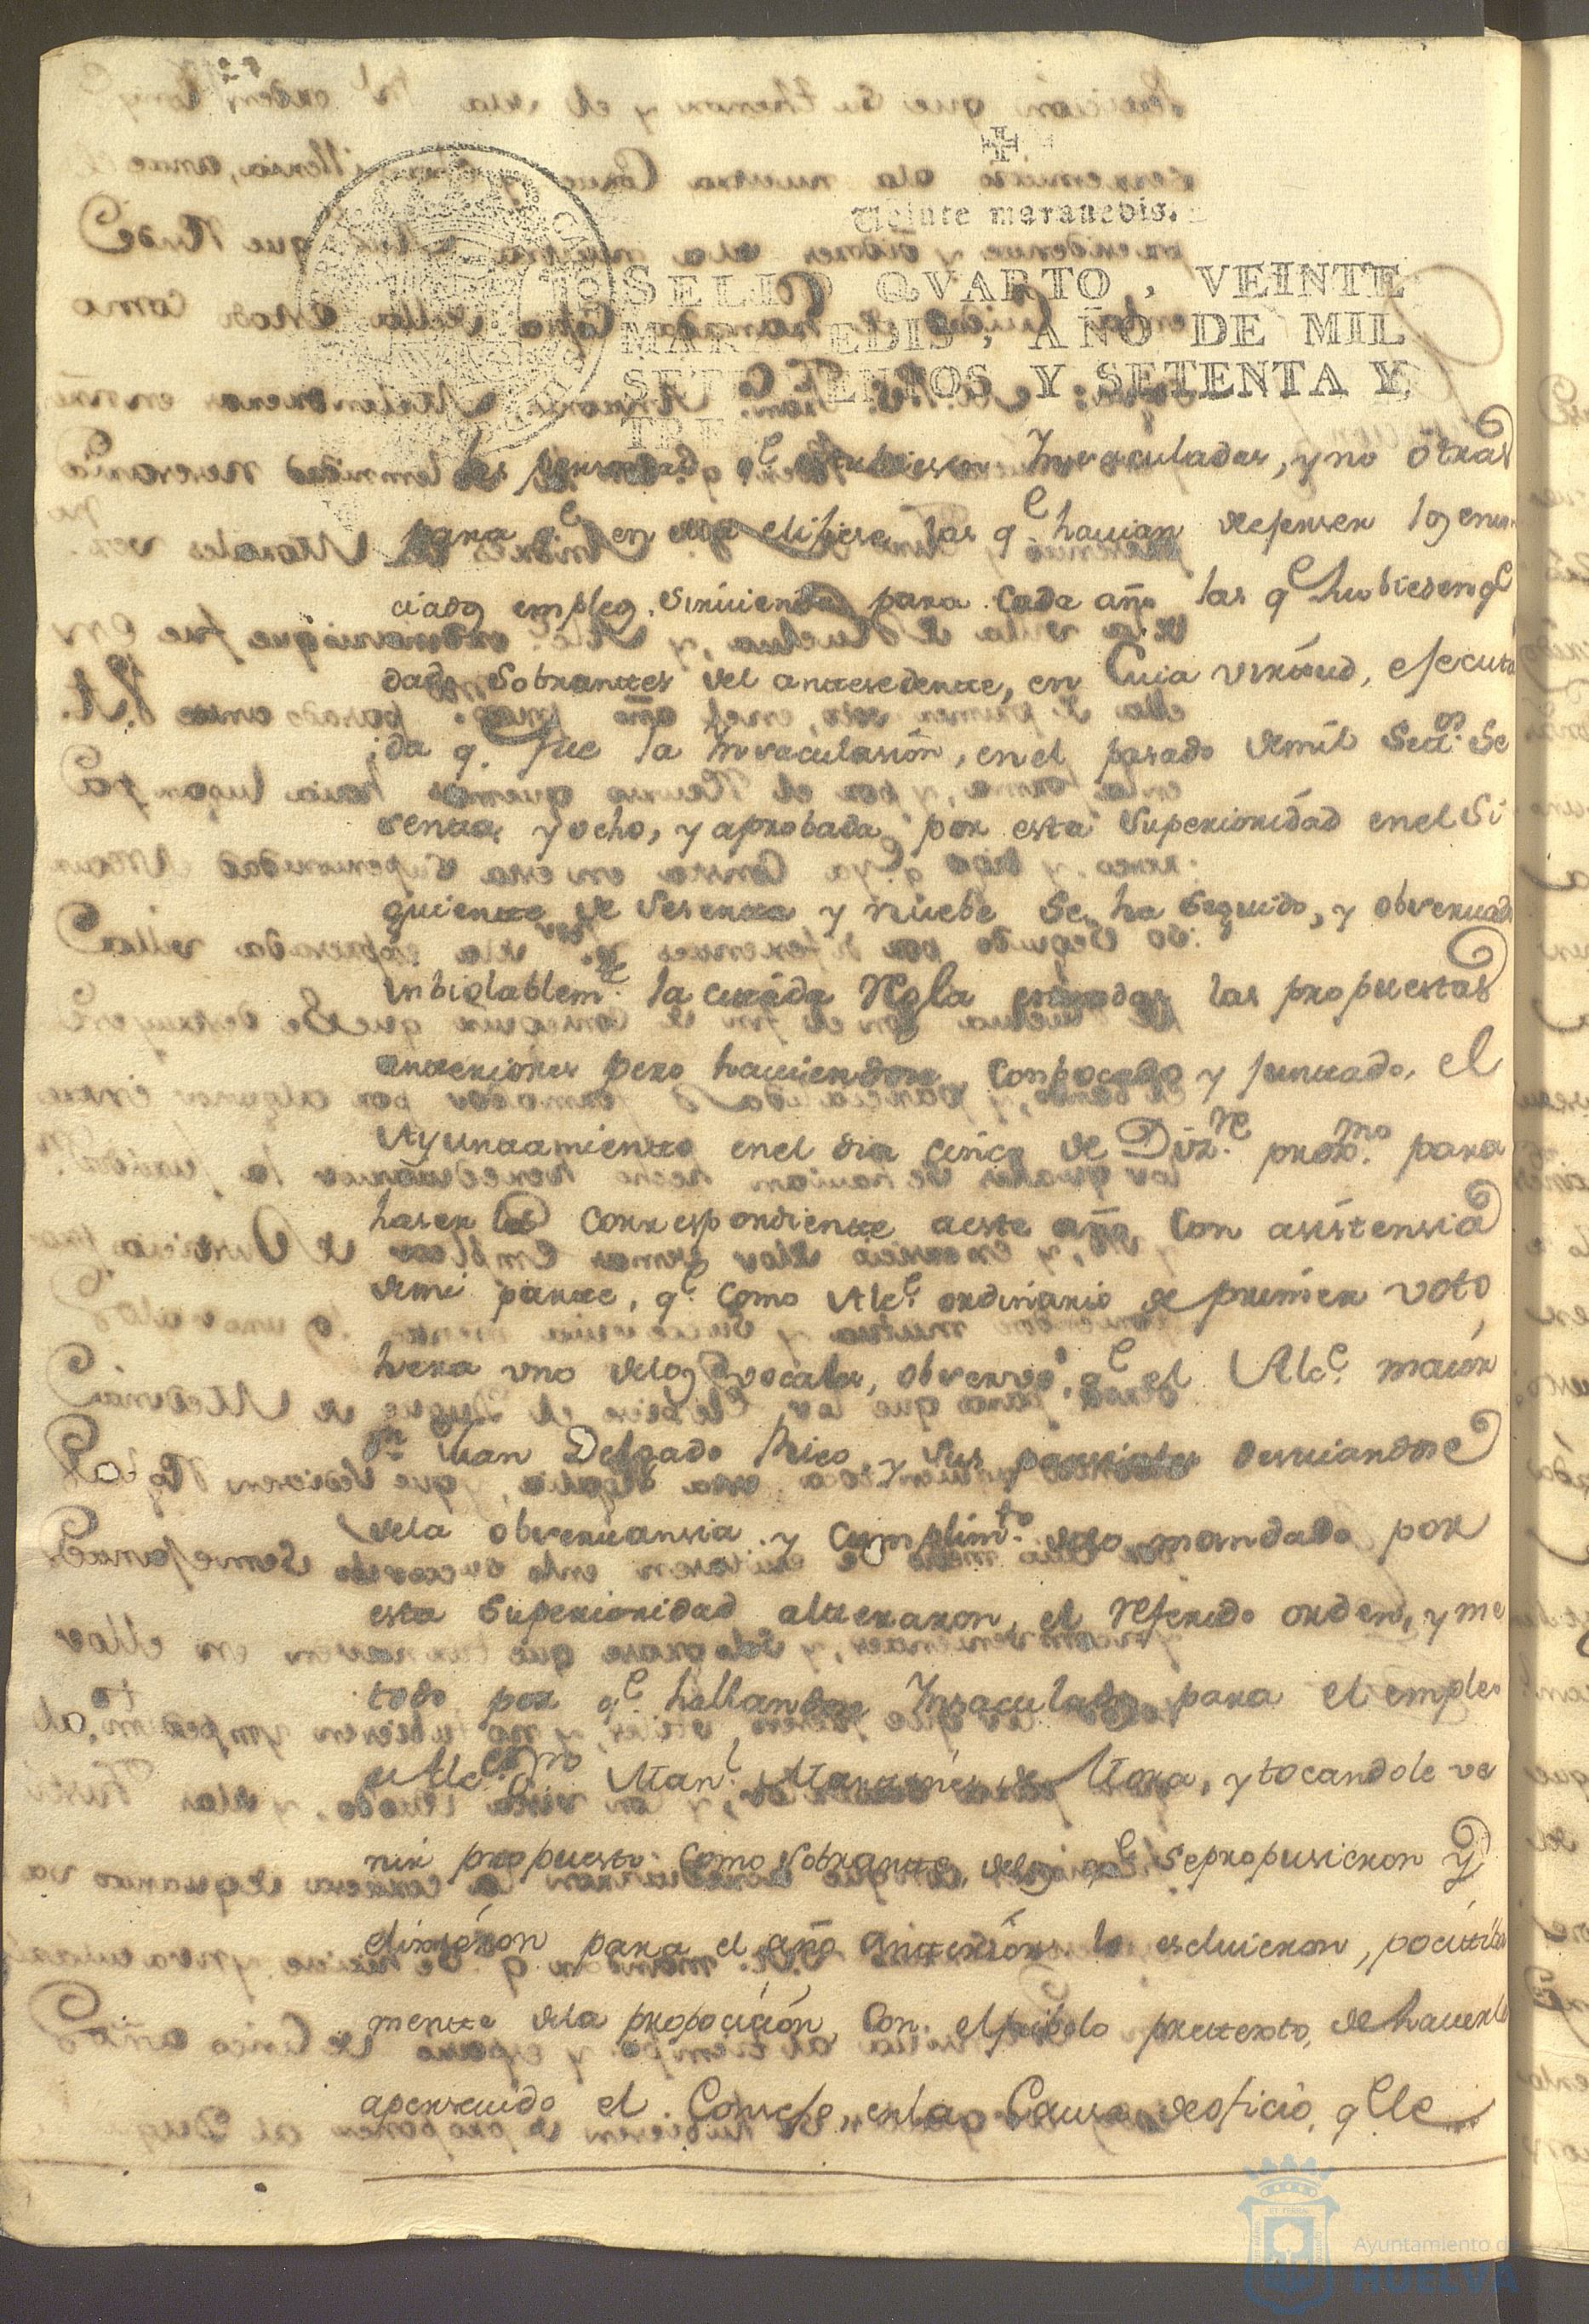 Veinte maravedis.
SELLO QVARTO, VEINTE
MARAVEDIS, AÑO DE MIL
SETECIENTOS Y SETENTA Y
TRES
las personas q.e estubiesen Insaculadas, y no otras
para q.e en ella elijiese las q.e hauian de exerser los enun
ciados empleos, siruiendo para cada año las q.e hubiesen q.e
dado sobrantes del antesedente, en Cuia virtud, ejecuta
da q. fue la Insaculasion, en el pasado de mil Set.os Se
senta, y ocho, y aprobada por esta Superioridad en el Si
guiente de Sesenta y nuebe Se ha seguido, y obseruado
inbiolablem.te la citada Regla en todas las propuestas
anteriores pero hauiendose Conbocado y juntado, el
Ayuntamiento en el dia cinco de Diz.re prox.mo para
haser las Correspondiente a este año Con asistensia
de mi parte, q.e Como Alc.e ordinario de primer voto,
hera uno de los vocales, obseruó, q.e el Alc.e maior
D.n Juan Delgado Rico, y sus parsiales desuiandose
de la obseruansia y cumplim.to de lo mandado por
esta Superioridad alteraron, el referido orden, y me
todo por q.e hallandose Insaculado para el empleo
de Alc.e Man.l Martines de Mora, y tocandole ve
nir propuesto Como Sobrante, de los q.e Se propusieron y
elixieron para el año anterior lo escluieron,
mente de la proposición Con el fribolo pretexto, de hauerle
aperseuido el Consejo, en la Causa de oficio, q.e le
Ayuntamiento de
HUELVA